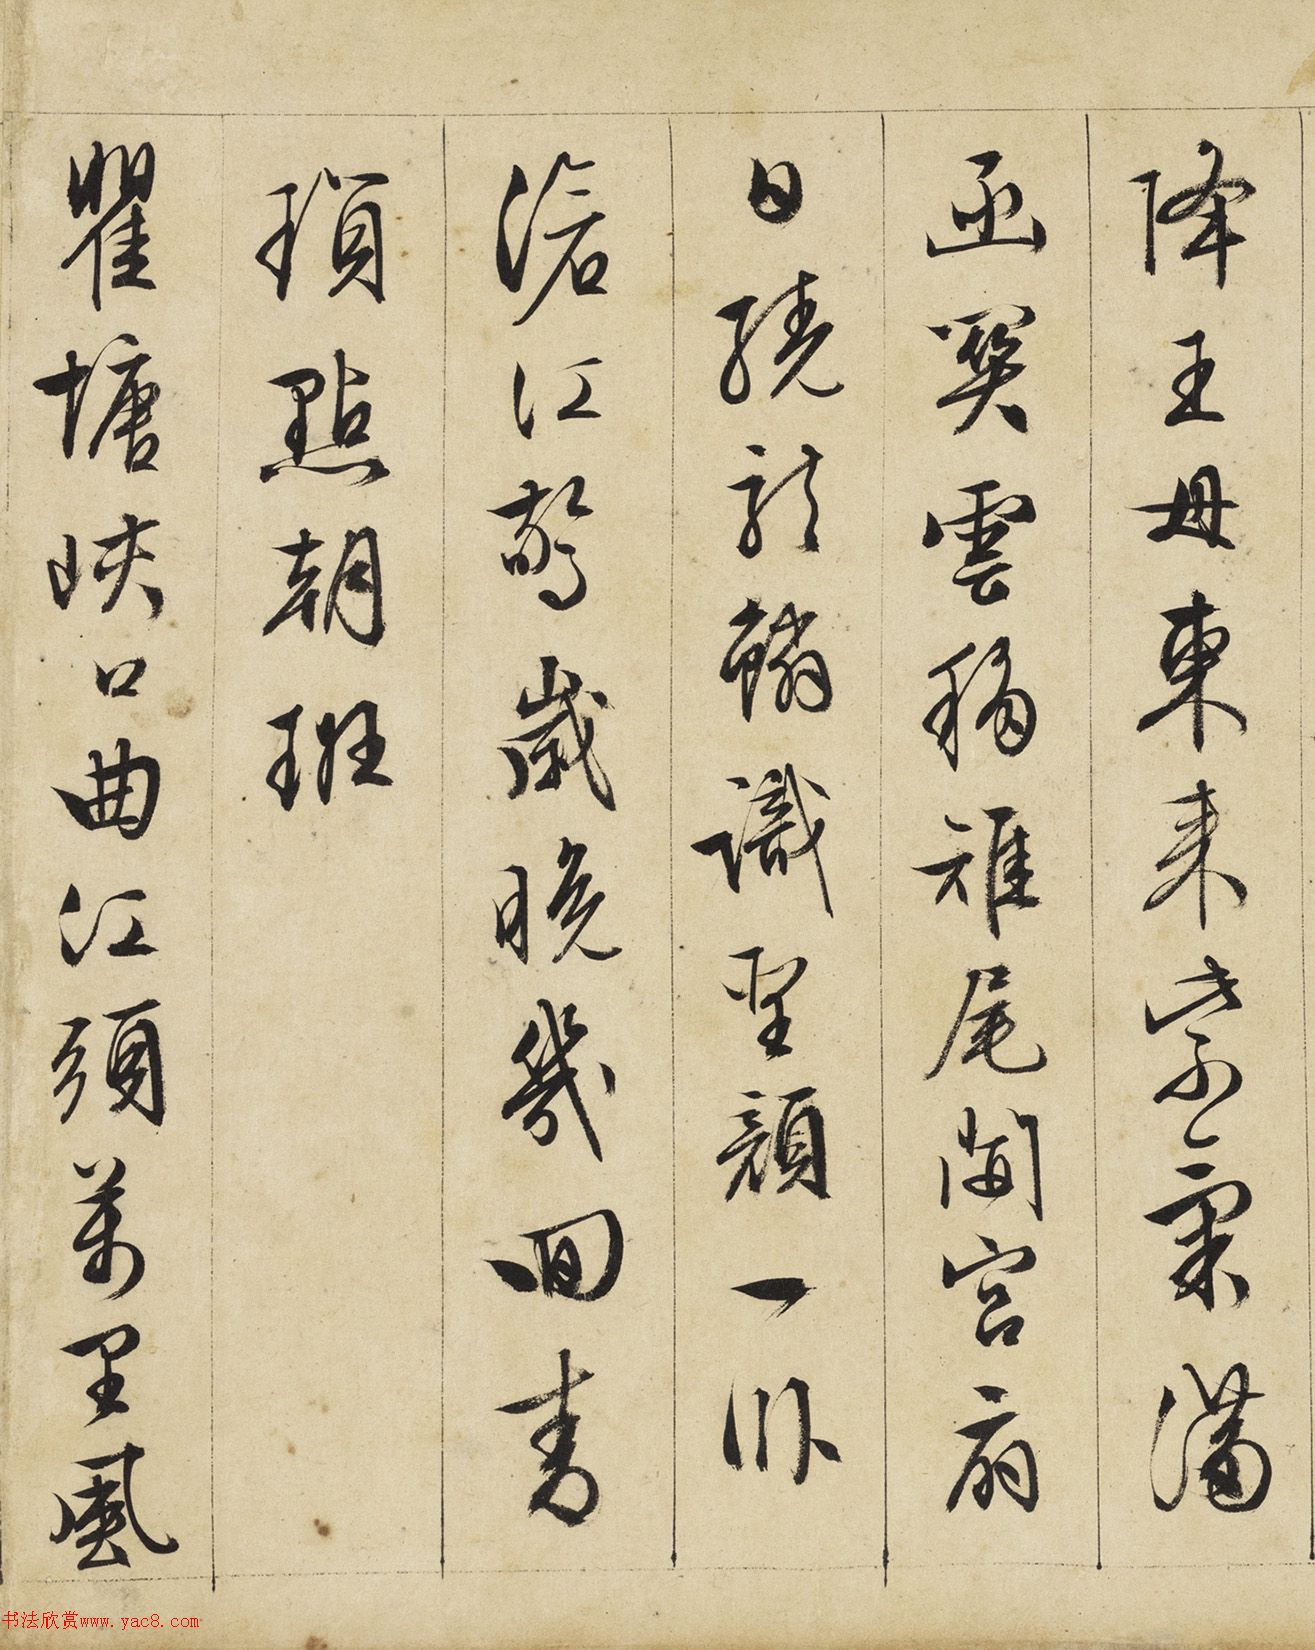 降王母東来紫氣満
函関雲移雉尾開宮扇
日繞龍鱗識聖顔一卧
滄江驚歳晚幾回青
瑣點朝班
瞿塘峽口曲江頭萬里風
书法欣赏www.yac8.com